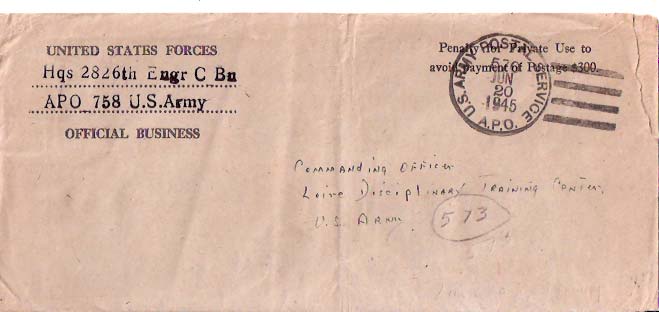 UNITED STATES FORCES
Hqs 2826th Engr C Bn
APO 758 U.S.Army
OFFICIAL BUSINESS
Penalty for Private Use to
avoid payment of Postage $300.
U.S. ARMY POSTAL SERVICE
JUN
20
1945
A.P.O.
Commanding Officer
Loire Disciplinary Training Center,
U.S. Army
573